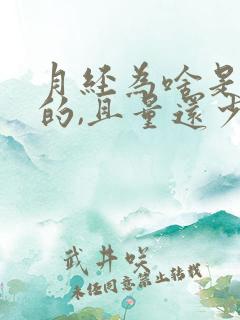 月经为啥是
的,且量还少
武井咲
未经同意禁止转载